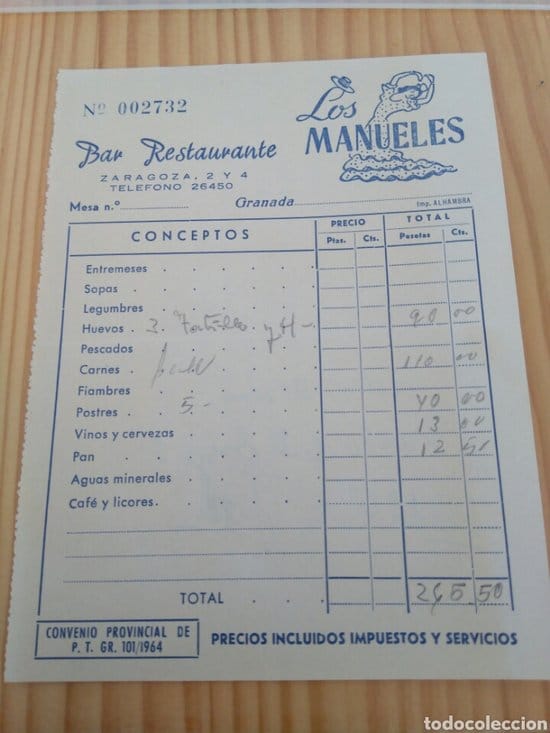 Nº 002732
Los
MANUELES
Bar Restaurante
ZARAGOZA, 2 Y 4
TELEFONO 26450
Mesa n.º
Granada
Imp. ALHAMBRA
CONCEPTOS PRECIO TOTAL
Ptas. Cts. Pesetas Cts.
Entremeses
Sopas
Legumbres
Huevos 90 00
Pescados
Carnes 110 00
Fiambres
Postres 5.- 40 00
Vinos y cervezas 13 00
Pan 12 50
Aguas minerales
Café y licores.
TOTAL 265.50
CONVENIO PROVINCIAL DE
P. T. GR. 101/1964
PRECIOS INCLUIDOS IMPUESTOS Y SERVICIOS
todocoleccion